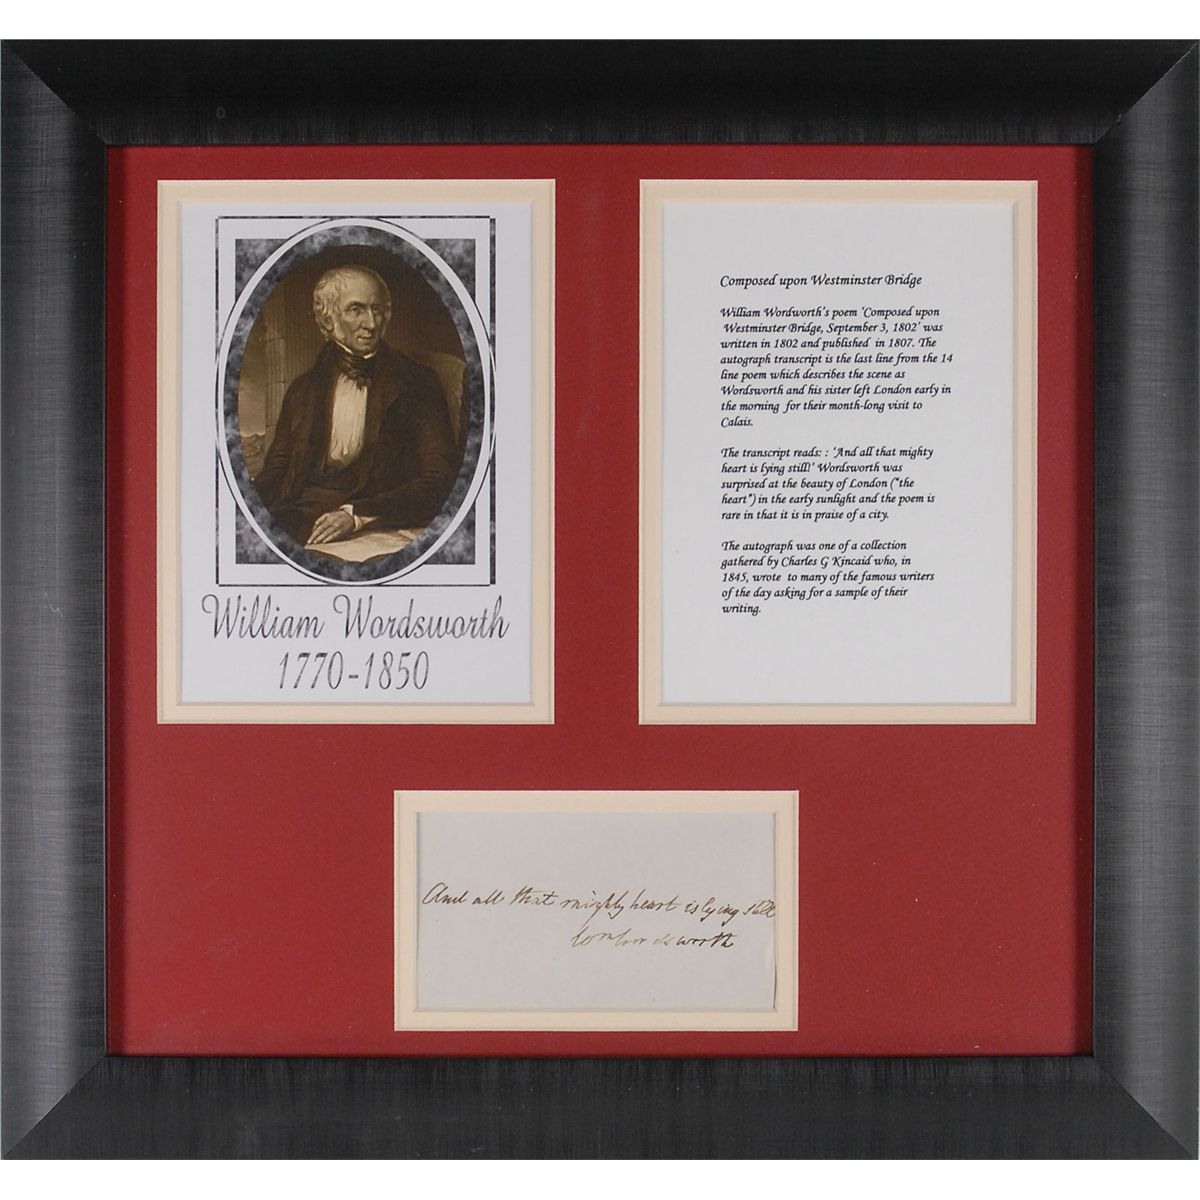 William Wordsworth
1770-1850
Composed upon Westminster Bridge
William Wordworth's poem 'Composed upon
Westminster Bridge, September 3, 1802' was
written in 1802 and published in 1807. The
autograph transcript is the last line from the 14
line poem which describes the scene as
Wordsworth and his sister left London early in
the morning for their month-long visit to
Calais.
The transcript reads: : 'And all that mighty
heart is lying still!' Wordsworth was
surprised at the beauty of London ("the
heart") in the early sunlight and the poem is
rare in that it is in praise of a city.
The autograph was one of a collection
gathered by Charles G Kincaid who, in
1845, wrote to many of the famous writers
of the day asking for a sample of their
writing.
And all that mighty heart is lying still
Wm Wordsworth